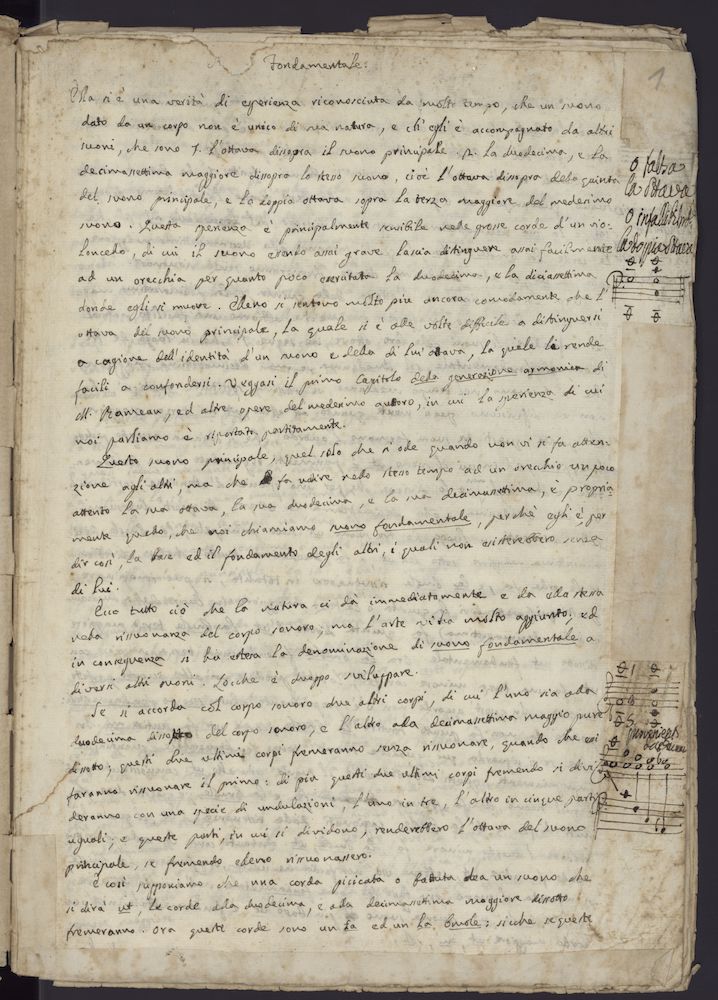 Fondamentale:
Ella si è una verità di esperienza riconosciuta da molto tempo, che un suono
dato da un corpo non è unico di sua natura, e ch'egli è accompagnato da altri
suoni, che sono 1. l'ottava dissopra il suono principale. 2. la duodecima, e la
decimasettima maggiore dissopra lo stesso suono, cioè l'ottava dissopra della quinta
del suono principale, e la doppia ottava sopra la terza maggiore del medesimo
suono. Questa sperienza è principalmente sensibile nelle grosse corde d'un vio-
loncello, di cui il suono essendo assai grave lascia distinguere assai facilmente
ad un orecchia per quanto poco esercitata la duodecima, e la diciasettima
donde egli si muove. Elleno si sentono molto piu ancora comodamente che l'
ottava del suono principale, la quale si è alle volte difficile a distinguersi
a cagione dell'identità d'un suono e della di lui ottava, la quale li rende
facili a confondersi. Veggasi il primo Capitolo della generazione armonica di
M. Rameau, ed altre opere del medesimo auttore, in cui la sperienza di cui
noi parliamo è riportata partitamente.
Questo suono principale, quel solo che si ode quando non vi si fa atten-
zione agli altri, ma che fa udire nello stesso tempo ad un orecchio un poco
attento la sua ottava, la sua duodecima, e la sua decimasettima, è propria
mente quello, che noi chiamiamo suono fondamentale, perchè egli è, per
dir così, la base ed il fondamento degli altri, i quali non esisterebbero senza
di lui.
Ecco tutto ciò che la natura ci dà immediatamente e da ella stessa
nella rissuonanza del corpo sonoro, ma l'arte vi ha molto aggiunto, ed
in conseguenza si ha estesa la denominazione di suono fondamentale a
diversi altri suoni. Locche è duoppo sviluppare.
Se si accorda col corpo sonoro due altri corpi, di cui l'uno sia alla
duodecima dissotto del corpo sonoro, e l'altro alla decimasettima maggio pure
dissotto; questi due ultimi corpi fremeranno senza rissuonare, quando che essi
faranno rissuonare il primo: di piu questi due ultimi corpi fremendo si divi
deranno con una specie di undulazioni, l'uno in tre, l'altro in cinque parti
uguali; e queste parti, in cui si dividono, renderebbero l'ottava del suono
principale, se fremendo elleno rissuonassero.
E così supponiamo che una corda picicata o battuta dea un suono che
si dirà ut, le corde alla duodecima, e alla decimasettima maggiore dissotto
fremeranno. Ora queste corde sono un fa ed un la bmole: sicche se queste
1
o falsa
la ottava
o infallibilmte
la doppia ottava